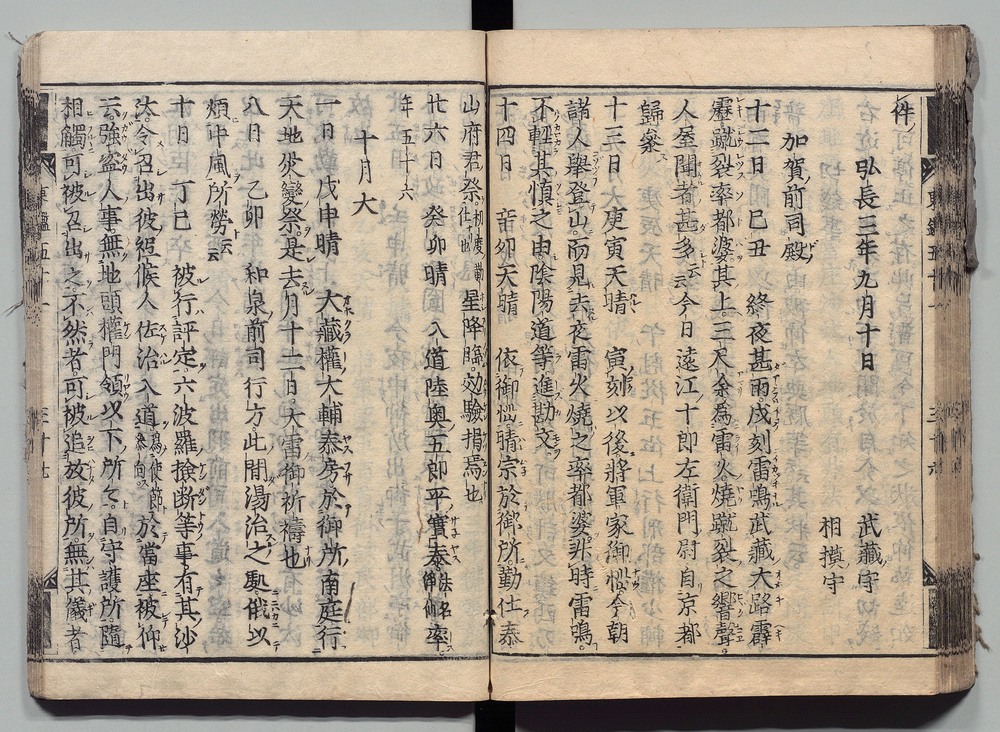 件
弘長三年九月十日　武藏守
相摸守
加賀前司殿
十二日　己丑　終夜甚雨。戌刻雷鳴武藏大路霹
靂蹴裂率都婆其上。三尺余為雷火。燒蹴裂之響聲。
人屋聞者甚多云云今日遠江十郎左衛門尉自京都
歸參
十三日　大庚寅天晴　寅刻以後將軍家御惱今朝
諸人擧登山。而見去夜雷火燒之率都婆非時雷鳴。
不輕其慎之由陰陽道等進勘文。
十四日　辛卯天晴　依御惱晴宗於御所。勤仕泰
山府君祭。星降臨。効驗揭焉也
廿六日　癸卯晴　入道陸奥五郎平實泰法名 卒。
年五十六
十月大
一日　戊申晴　大藏權大輔泰房於御所。南庭行
天地災變祭。是去月十二日。大雷御祈禱也
八日　乙卯　和泉前司行方此間湯治之輿俄以
煩中風所勞云云
十日　丁巳　被行評定六波羅撿断等事有其沙
汰。令召出彼祗候人佐治入道為使節參向 於當座被仰
云。強盗人事。無地頭權門領以下所々。自守護所隨
相觸可被召出之不然者可被追放彼所。無其儀者
東鑑五十一
三十六
東鑑五十一
三十七